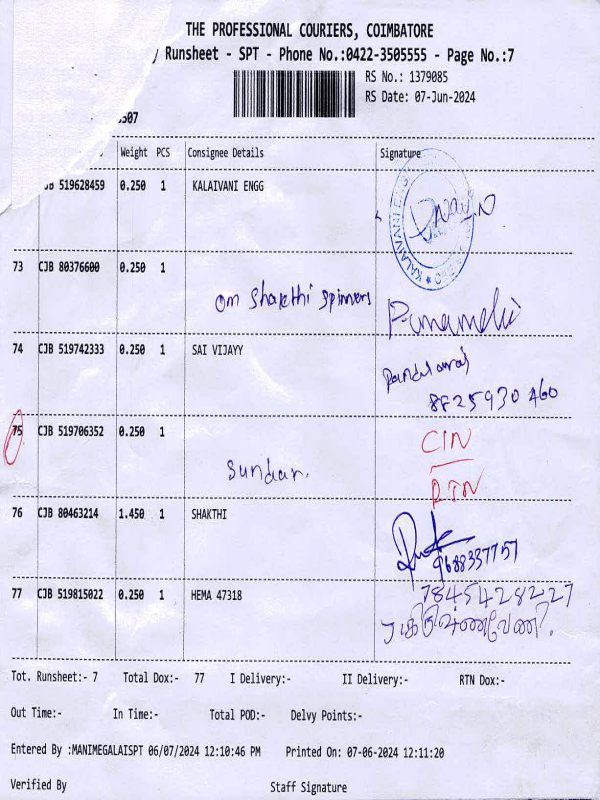 THE PROFESSIONAL COURIERS, COIMBATORE
Runsheet - SPT - Phone No.:0422-3505555 - Page No.:7
RS No.: 1379085
RS Date: 07-Jun-2024
Weight PCS Consignee Details Signature
519628459 0.250 1 KALAIVANI ENGG
73 CJB 80376600 0.250 1
Om Shakthi Spinners
74 CJB 519742333 0.250 1 SAI VIJAYY
8825930460
75 CJB 519706352 0.250 1 CIN
Sundar. RTN
76 CJB 80463214 1.450 1 SHAKTHI
9688337757
77 CJB 519815022 0.250 1 HEMA 47318 7845428227
கிருஷ்ணவேணி.
Tot. Runsheet:- 7 Total Dox:- 77 I Delivery:- II Delivery:- RTN Dox:-
Out Time:- In Time:- Total POD:- Delvy Points:-
Entered By :MANIMEGALAISPT 06/07/2024 12:10:46 PM Printed On: 07-06-2024 12:11:20
Verified By Staff Signature